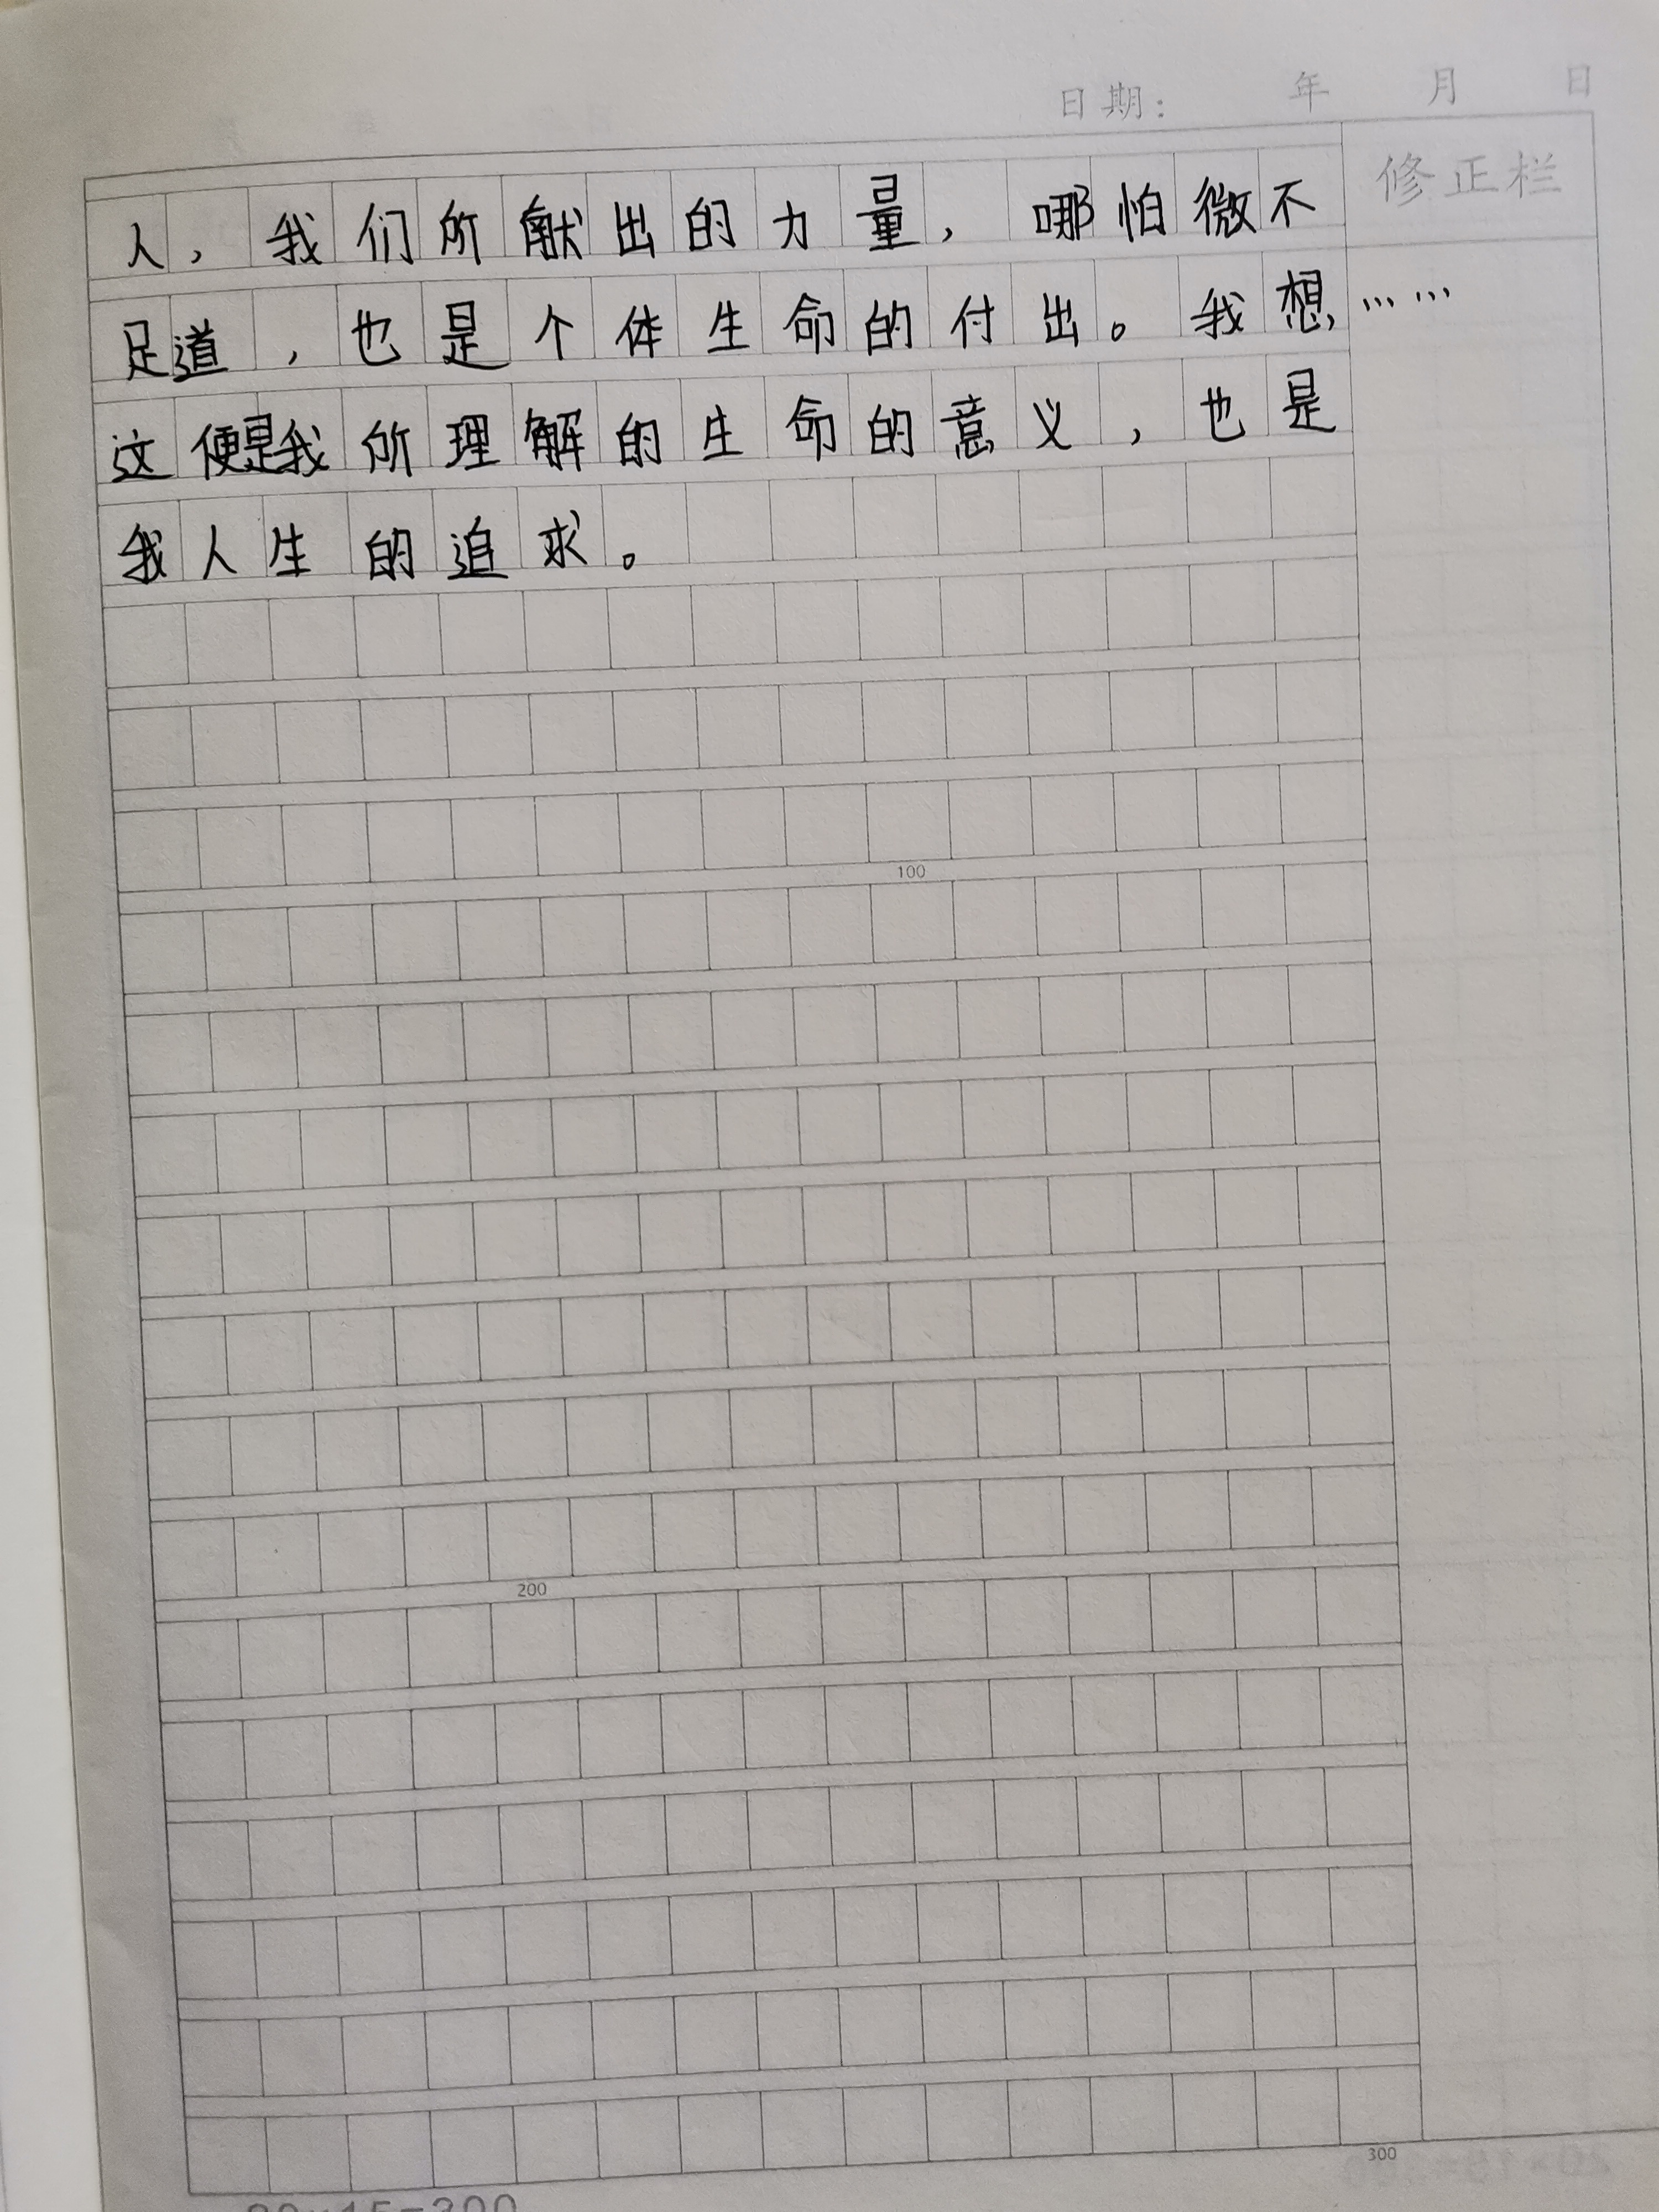 日期： 年 月 日
修正栏
人，我们所献出的力量，哪怕微不
足道，也是个体生命的付出。我想，……
这便是我所理解的生命的意义，也是
我人生的追求。
100
200
300
20×15=300